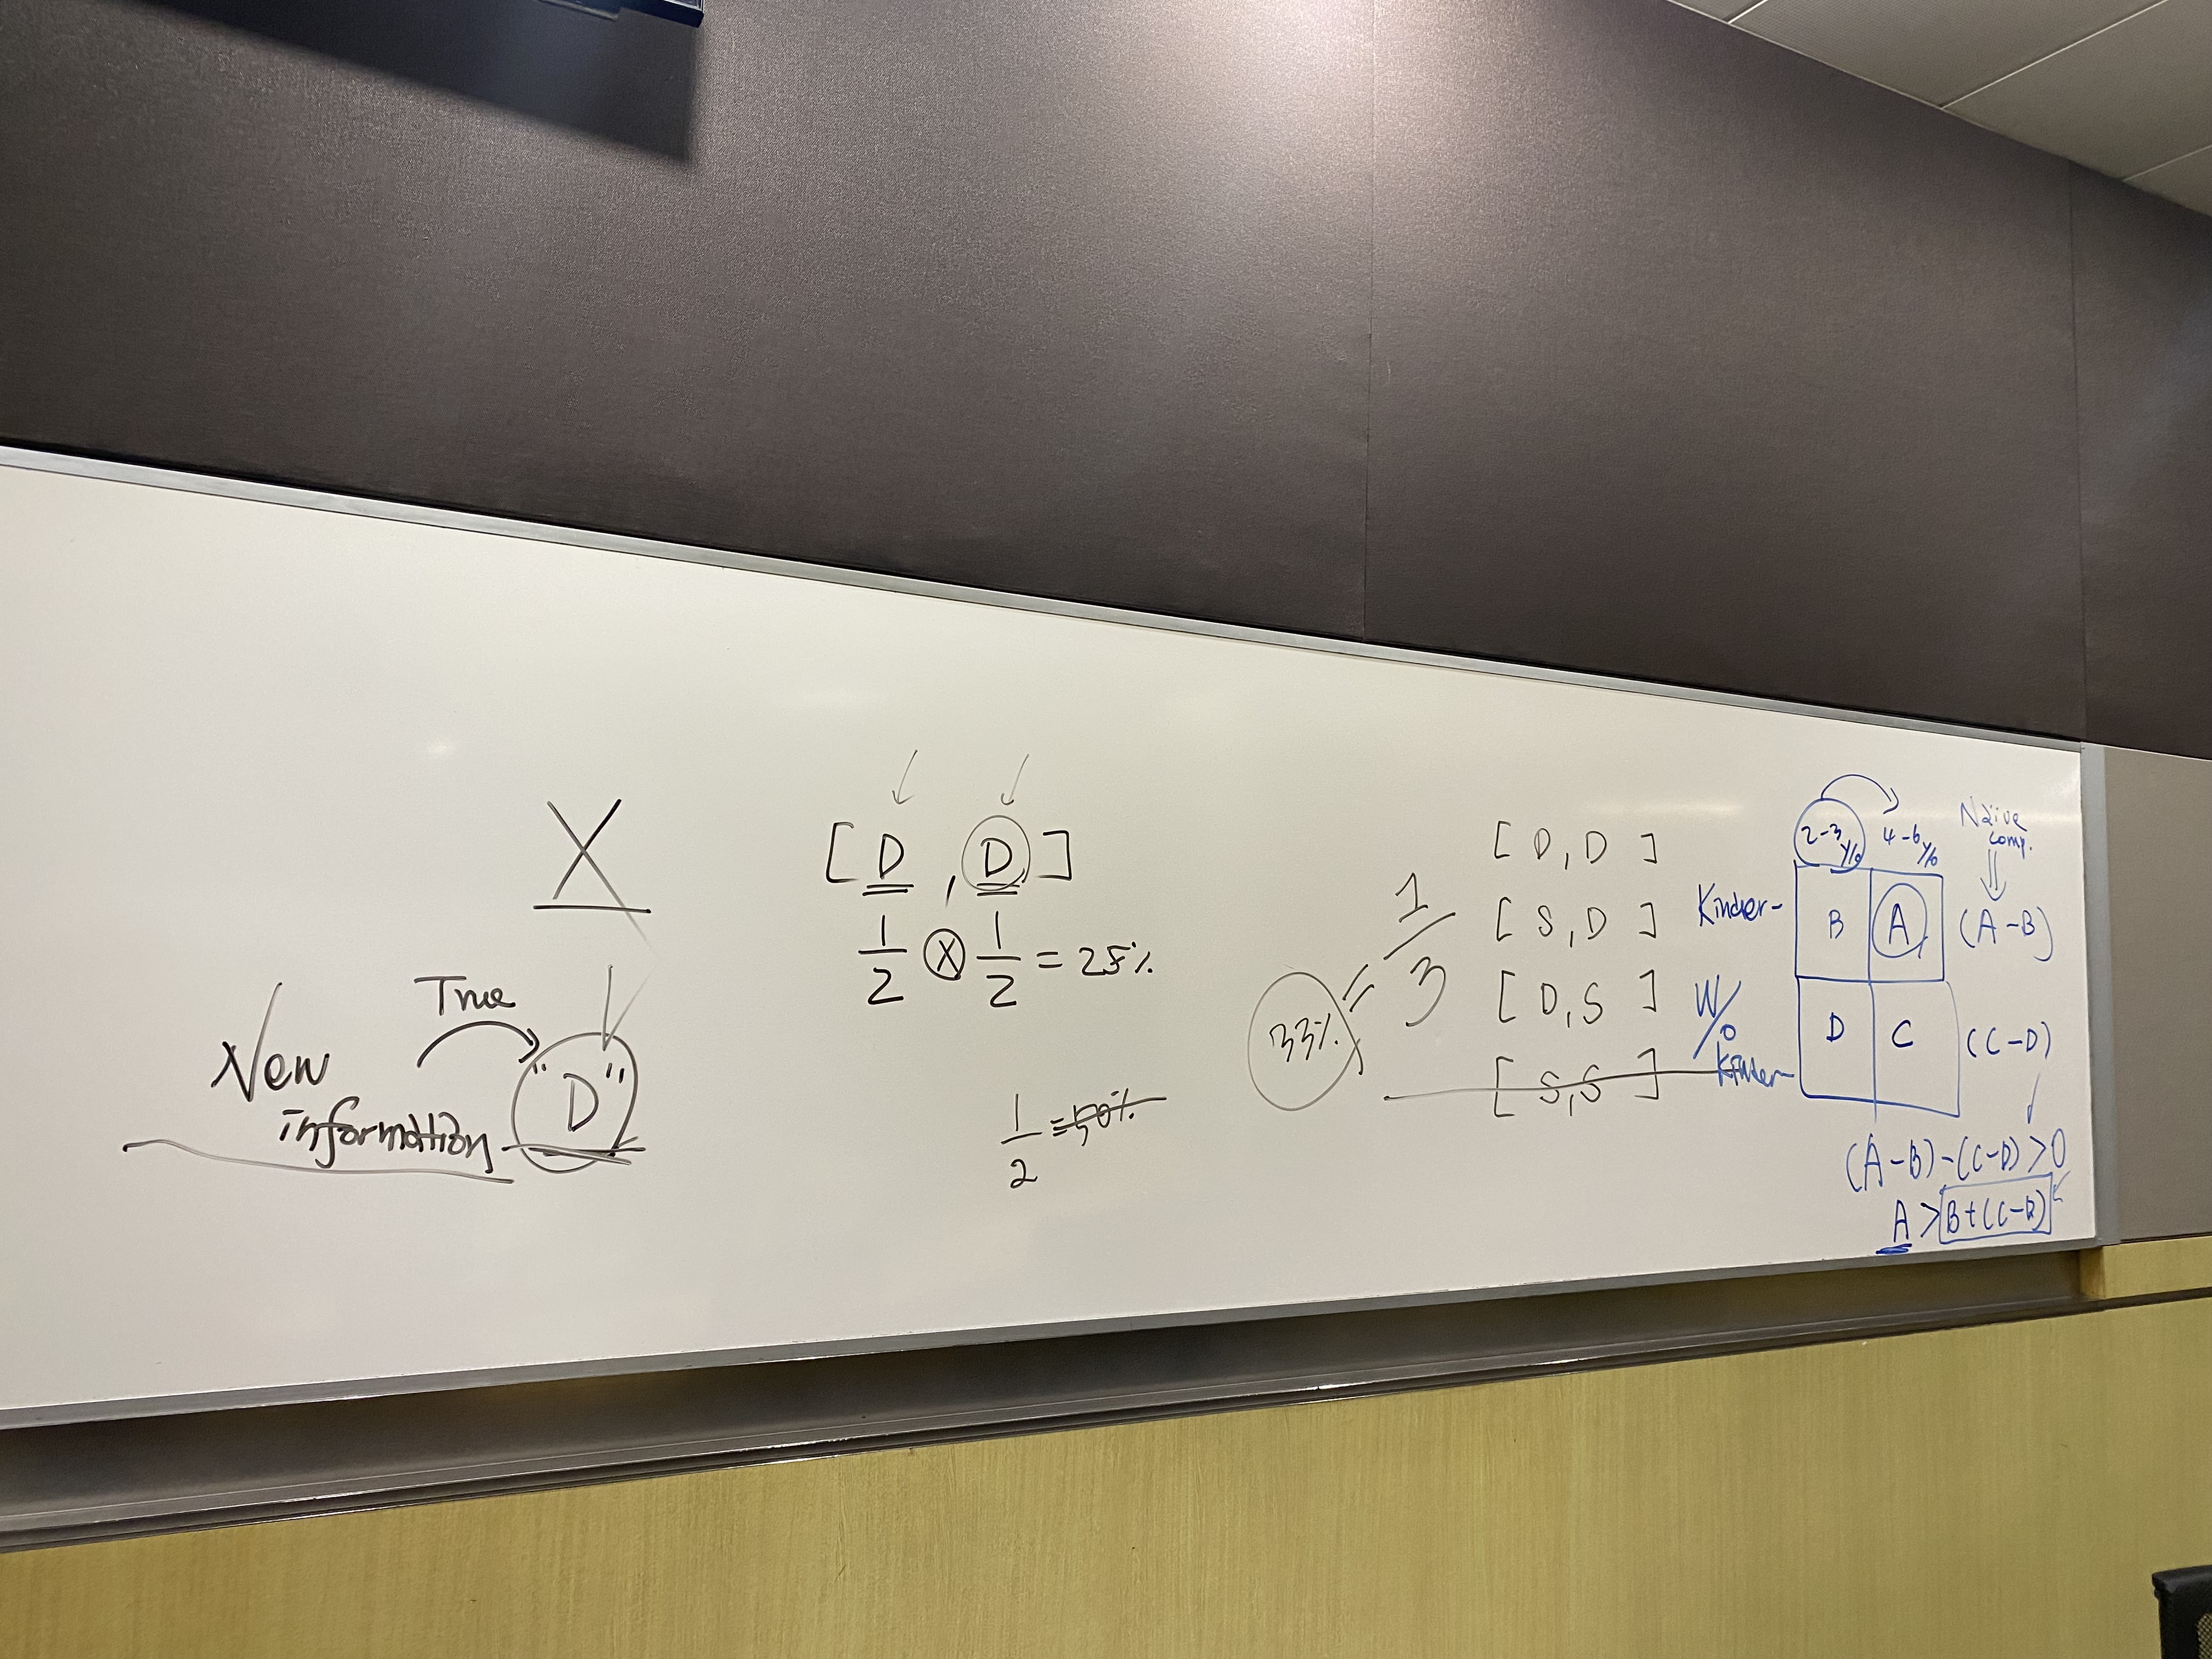 X
True
New
information
"D"
[ D , D ]
1/2 ⊗ 1/2 = 25%
1/2 = 50%
33% = 1/3
[ D, D ]
[ S, D ]
[ D, S ]
[ S, S ]
2-3 y/o 4-6 y/o
Naive
comp.
Kinder- B A (A-B)
W/o
Kinder- D C (C-D)
(A-B)-(C-D)>0
A > B+(C-D)